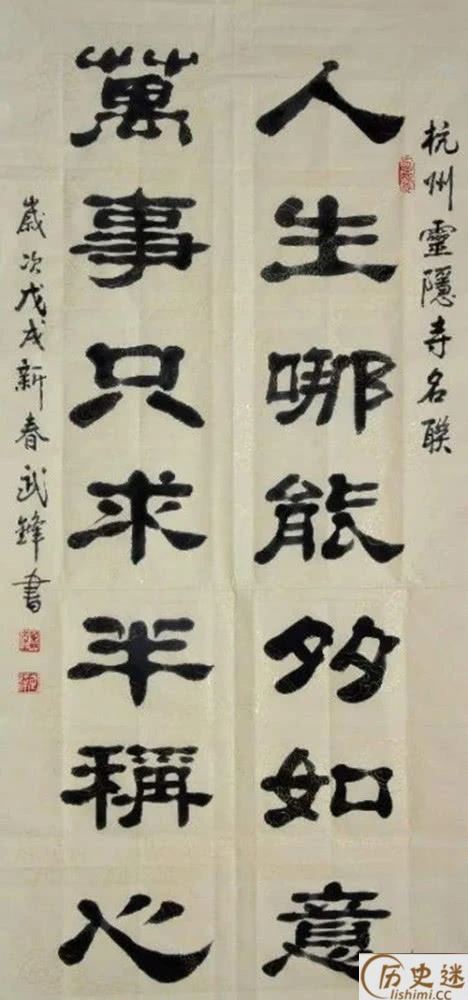 杭州靈隱寺名聯
人生哪能多如意
萬事只求半稱心
歲次戊戌新春武鋒書
历史迷
lishimi.cc